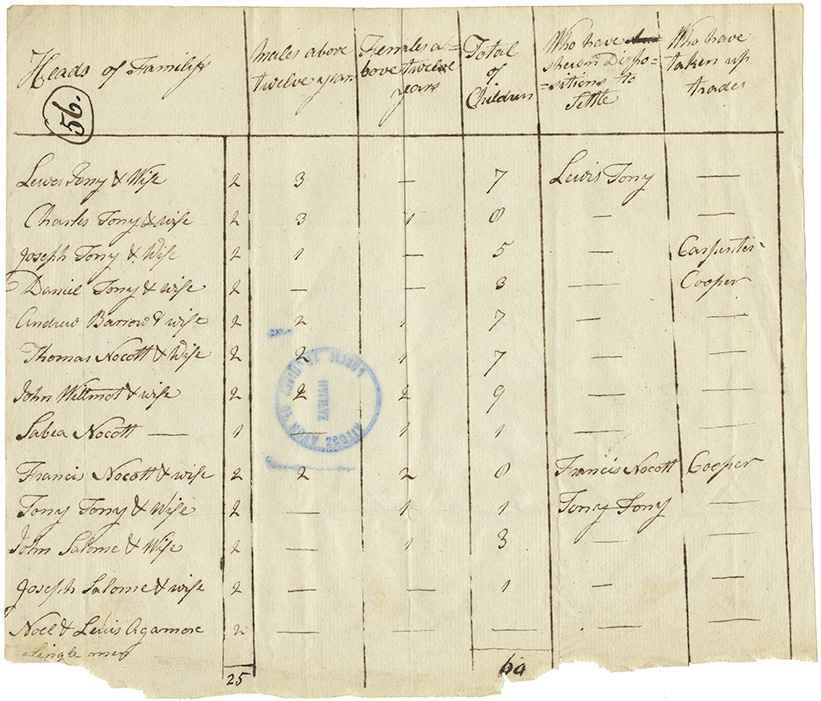 Heads of Familys
56.
Males above
twelve years
Females a=
bove twelve
years
Total
of
Children
Who have
shewn Dispo=
=sitions to
Settle
Who have
taken up
trades
Lewis Tony & Wife 2 3 — 7 Lewis Tony —
Charles Tony & wife 2 3 1 8 — —
Joseph Tony & Wife 2 1 — 5 — Carpenter
Daniel Tony & wife 2 — — 3 — Cooper
Andrew Barrow & wife 2 2 1 7 — —
Thomas Nocott & Wife 2 2 1 7 — —
John Willmot & wife 2 2 2 9 — —
Sabea Nocott — 1 — 1 1 — —
Francis Nocott & wife 2 2 2 8 Francis Nocott Cooper
Tony Tony & Wife 2 — 1 1 Tony Tony —
John Salome & Wife 2 — 1 3 — —
Joseph Salome & wife 2 — — 1 — —
Noel & Lewis Agamore 2 — — — — —
Single men
25 60
PUBLIC ARCHIVES OF NOVA SCOTIA
HALIFAX